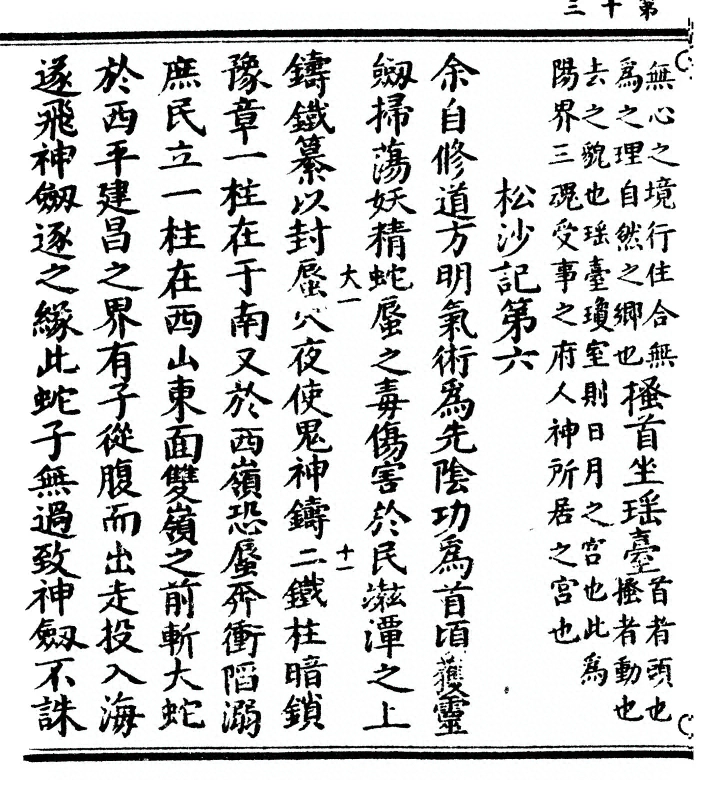 第十三
無心之境行住合無
爲之理自然之鄉也
搔首坐瑶臺
首者頭也
搔者動也
去之貌也瑶臺瓊室則日月之宮也此爲
陽界三魂受事之府人神所居之宮也
松沙記第六
余自修道方明氣術爲先陰功爲首頃獲靈
劒掃蕩妖精蛇蜃之毒傷害於民滋潭之上
大一
十一
鑄鐵纂以封蜃穴夜使鬼神鑄二鐵柱暗鎖
豫章一柱在于南又於西嶺恐蜃奔衝陷溺
庶民立一柱在西山東面雙嶺之前斬大蛇
於西平建昌之界有子從腹而出走投入海
遂飛神劒逐之緣此蛇子無過致神劒不誅